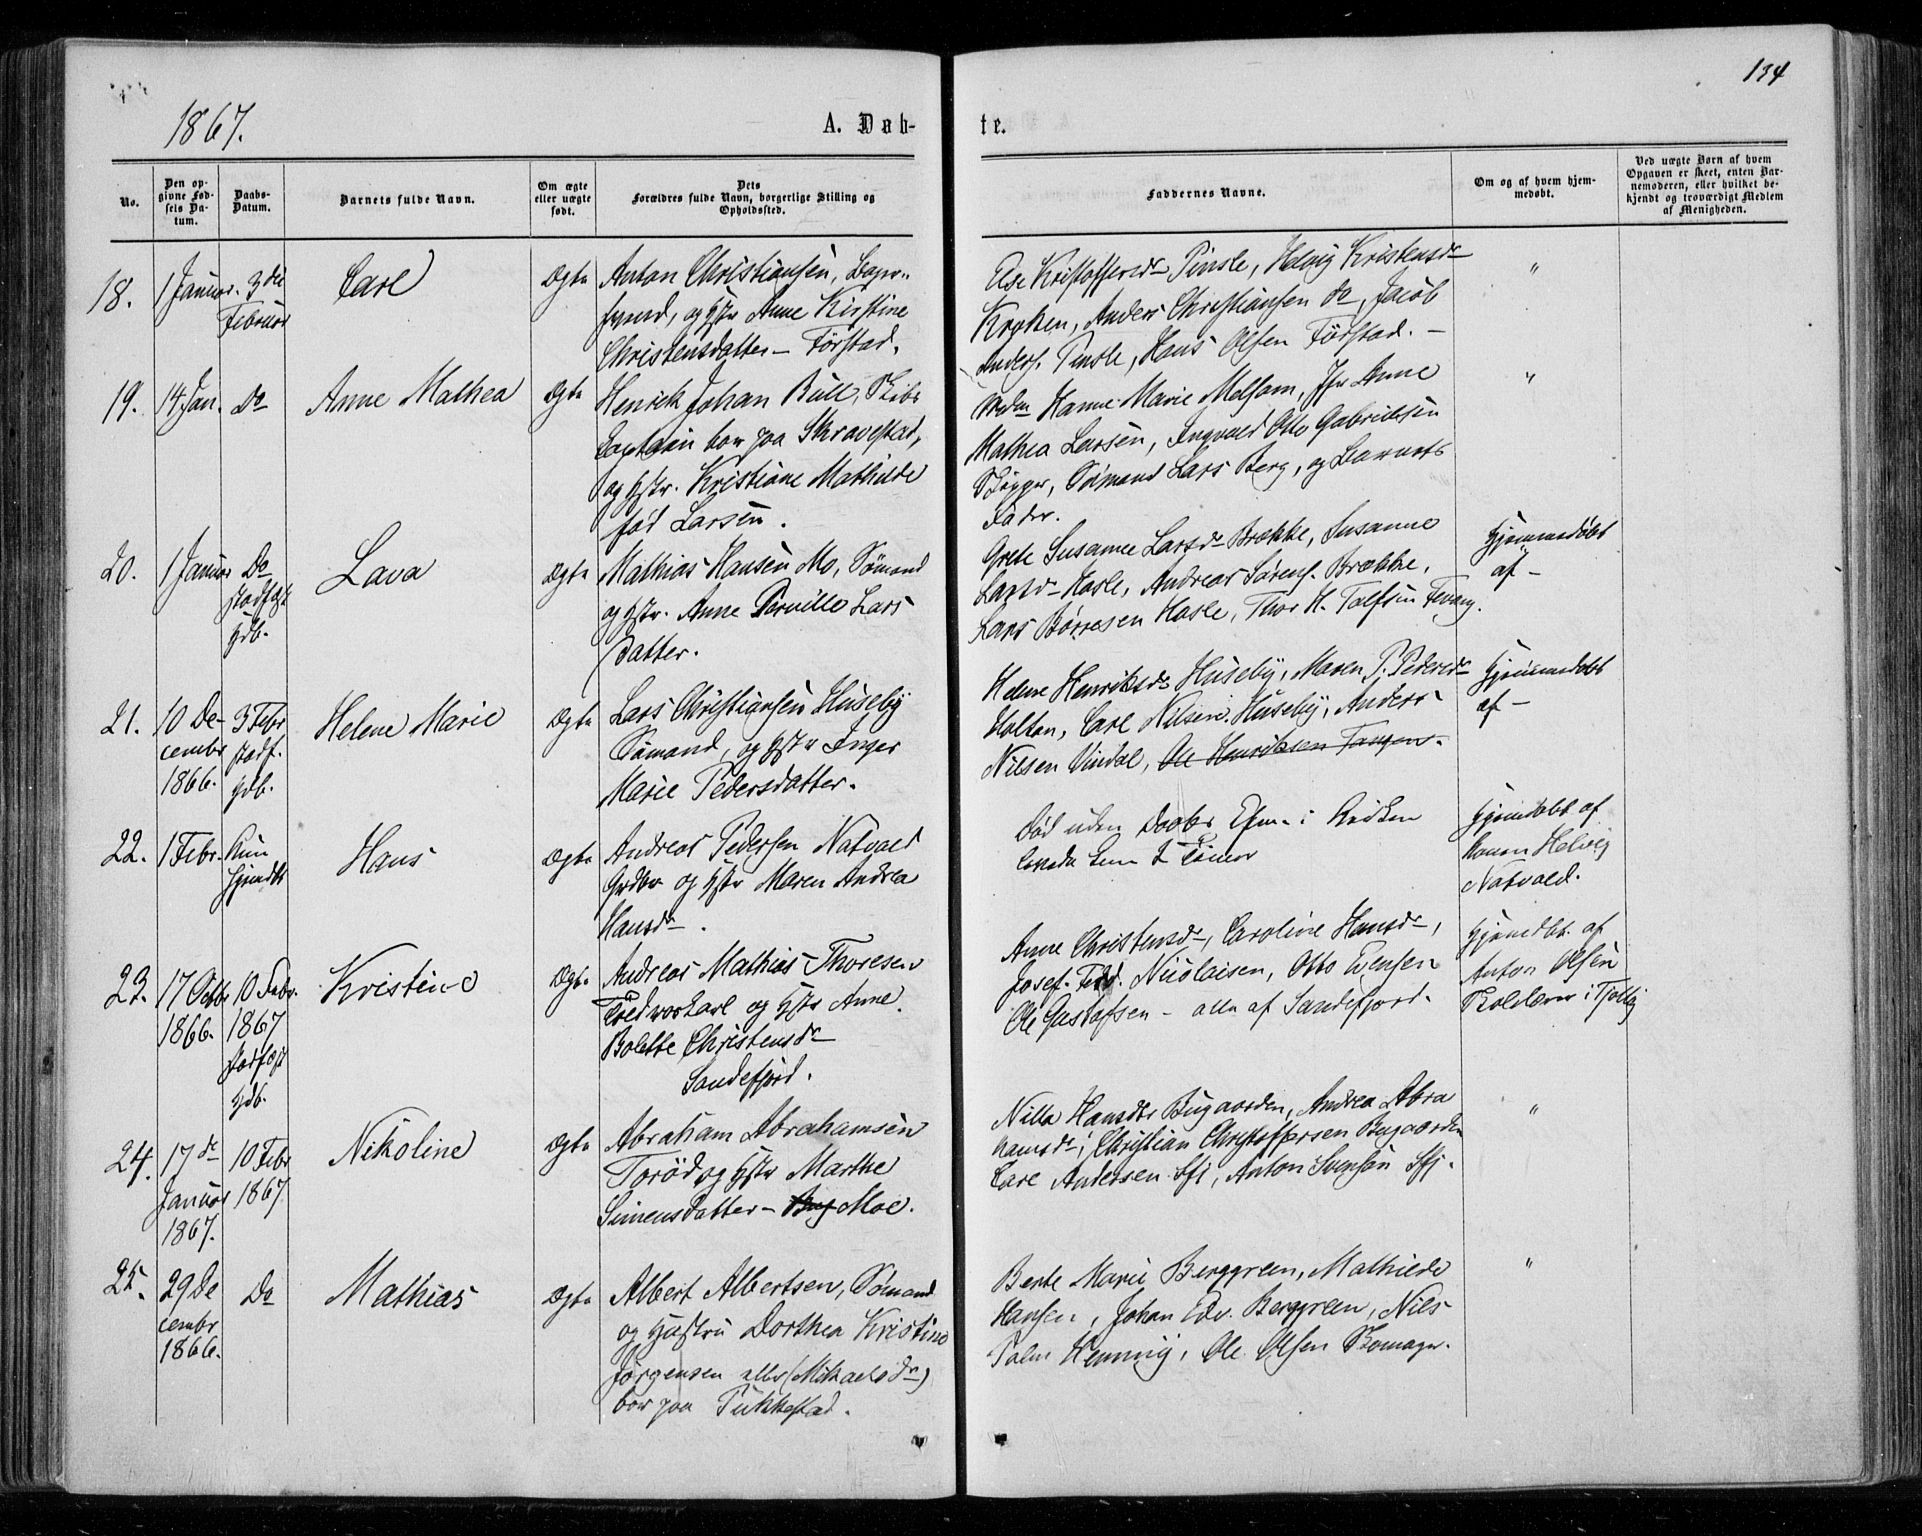 134
1867.
A. Døb-
te.
No.
Den op-
givne Fød-
sels Da-
tum.
Daabs-
Datum.
Barnets fulde Navn.
Om ægte
eller uægte
født.
Dets
Forældres fulde Navn, borgerlige Stilling og
Opholdssted.
Faddernes Navne.
Om og af hvem hjem-
medøbt.
Ved uægte Børn af hvem
Opgaven er skeet, enten Bar-
nemoderen, eller hvilket be-
kjendt og troværdigt Medlem
af Menigheden.
18.
1 Januar.
3die
Februar
Carl
Ægte
Anton Christiansen,
og Hstr Anne Kirstine
Christensdatter – Førstad.
Ase Kristoffersdr Pinsle, Helvig Kristensdr
Krøken, Anders Christiansen do, Jacob
Anders. Pinsle, Hans Olsen Førstad. –
"
19.
14 Jan.
Do
Anne Mathea
Ægte
Henrik Johan Bull, Skibs
Captain bor paa Skravestad,
og Hstr. Kristiane Mathilde
fød Larsen.
Hanne Marie Melsom, Jfr Anne
Mathea Larsen, Ingvald Otto Gabrielsen
Sømand Lars Berg, og Barnets
Fader.
"
20.
1 Januar
Do
stadfest
hdb.
Lava
Ægte
Mathias Hansen Mo, Sømand
og Hstr. Anne Pernille Lars
datter.
Grete Susanne Larsdr Brække, Susanne
Larsdr Hasle, Andreas Sørens. Brække,
Lars Børresen Hasle, Thor H. Tolfsen Fevang.
Hjemmedøbt
af –
21.
10 De-
cembr
1866.
3 Febr
stadf.
hdb.
Helene Marie
Ægte
Lars Christiansen Huseby
Sømand, og Hstr Inger
Marie Pedersdatter.
Helene Henriksdr Huseby, Maren P. Pedersdr
Holtan, Carl Nilsen Huseby, Anders
Nilsen Vindal, Ole Henriksen Tangen.
Hjemmedøbt
af –
22.
1 Febr.
Kun
hjemdbt
Hans
Ægte
Andreas Pedersen Natvald
Grdbr og Hstr Maren Andrea
Hansdr.
Død uden Daabs i
2 Timer
Hjemdøbt af
Konen Helvig
Natvald.
23.
17 Octbr
1866.
10 Febr.
1867
stadfest
hdb.
Kristine
Ægte
Andreas Mathias Thoresen
og Hstr Anne
Bolette Christensdr
Sandefjord.
Anne Christensdr, Caroline Hansdr,
Josef Ferd. Nicolaisen, Otto Evensen
Ole Gustafsen – alle af Sandefjord.
Hjemdbt. af
Anton Olsen
Skolelærer i Tjølling
24.
17de
Januar
1867.
10 Febr
1867.
Nikoline
Ægte
Abraham Abrahamsen
Torød og Hstr Marthe
Simensdatter – Bug Moe.
Nilla Hansdtr Bugaarden, Andrea Abra
hamsdr, Christian Christoffersen Bugaarden
Carl Andersen Sfj, Anton Svensen Sfj.
"
25.
29 De
cembr
1866.
Do
Mathias
Ægte
Albert Albertsen, Sømand
og Hustru Dorthea Kristine
Jørgensen eller (Mikaelsdr)
bor paa Tukkestad.
Berte Marie Berggreen, Mathilde
Hansen, Johan Edv. Berggreen, Nils
Palm Henning, Ole Olsen Skomagr.
"